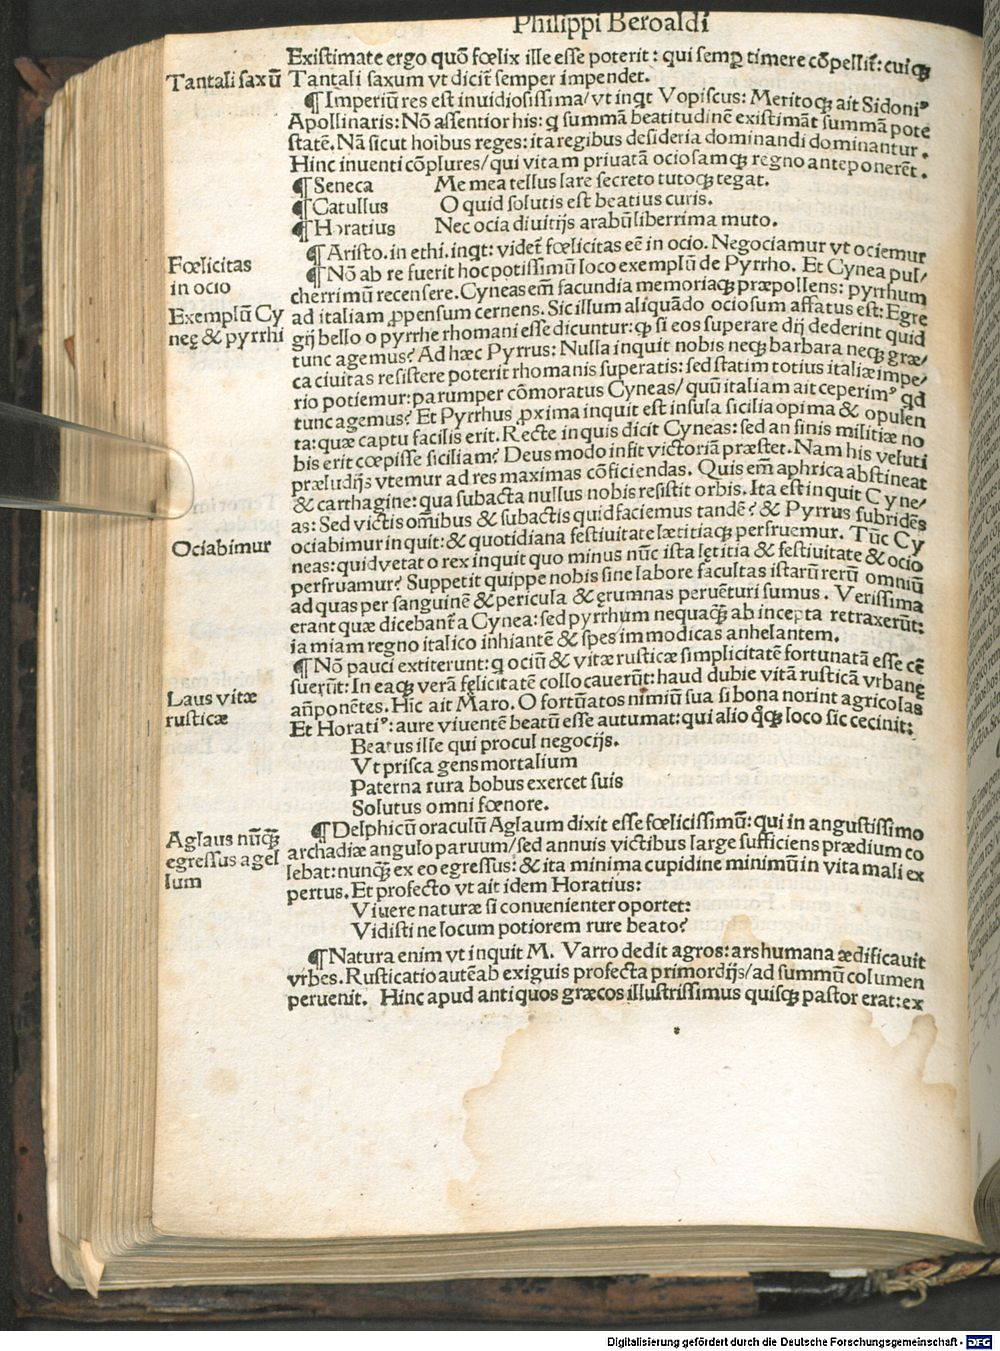 Philippi Beroaldi
Existimate ergo quō fœlix ille esse poterit: qui semꝑ timere cōpellit̄: cuiqꝫ
Tantali saxū
Tantali saxum vt dicit̄ semper impendet.
¶Imperiū res est inuidiosissima/vt inqt Vopiscus: Meritoqꝫ ait Sidoniꝰ
Apollinaris: Nō assentior his: q summā beatitudinē existimāt summā pote
statē. Nā sicut hoibus reges: ita regibus desideria dominandi dominantur.
Hinc inuenti cōplures/qui vitam priuatā ociosamqꝫ regno anteponerēt.
¶Seneca Me mea tellus lare secreto tutoqꝫ tegat.
¶Catullus O quid solutis est beatius curis.
¶Horatius Nec ocia diuitijs arabū liberrima muto.
¶Aristo. in ethi. inqt: videt̄ fœlicitas eē in ocio. Negociamur vt ociemur
Fœlicitas
in ocio
¶Nō ab re fuerit hoc potissimū loco exemplū de Pyrrho. Et Cynea pul/
cherrimū recensere. Cyneas em̄ facundia memoriaqꝫ præpollens: pyrrhum
Exemplū Cy
neę & pyrrhi
ad italiam ꝓpensum cernens. Sic illum aliquādo ociosum affatus est: Egre
grij bello o pyrrhe rhomani esse dicuntur: qꝫ si eos superare dij dederint quid
tunc agemus? Ad hæc Pyrrus: Nulla inquit nobis neqꝫ barbara neqꝫ græ/
ca ciuitas resistere poterit rhomanis superatis: sed statim totius italiæ impe/
rio potiemur: parumper cōmoratus Cyneas/ quū italiam ait ceperimꝰ qd
tunc agemus? Et Pyrrhus ꝓxima inquit est insula sicilia opima & opulen
ta: quæ captu facilis erit. Recte inquis dicit Cyneas: sed an finis militiæ no
bis erit cœpisse siciliam? Deus modo infit victoriā præstet. Nam his veluti
præludijs vtemur ad res maximas cōficiendas. Quis em̄ aphrica abstineat
& carthagine: qua subacta nullus nobis resistit orbis. Ita est inquit Cyne/
as: Sed victis om̄ibus & subactis quid faciemus tandē? & Pyrrus subridēs
Ociabimur
ociabimur inquit: & quotidiana festiuitate lætitiaqꝫ perfruemur. Tūc Cy
neas: quid vetat o rex inquit quo minus nūc ista lętitia & festiuitate & ocio
perfruamur? Suppetit quippe nobis sine labore facultas istarū rerū omniū
ad quas per sanguinē & pericula & ęrumnas peruēturi sumus. Verissima
erant quæ dicebant̄ a Cynea: sed pyrrhum nequaqꝫ ab incepta retraxerūt:
iamiam regno italico inhiantē & spes immodicas anhelantem.
¶Nō pauci extiterunt: q ociū & vitæ rusticæ simplicitatē fortunatā esse cē
suerūt: In eaqꝫ verā fęlicitatē collocauerūt: haud dubie vitā rusticā vrbanę
Laus vitæ
rusticæ
an̄ponētes. Hic ait Maro. O fortūatos nimiū sua si bona norint agricolas
Et Horatiꝰ: aure viuentē beatū esse autumat: qui alio q̄qꝫ loco sic cecinit:
Beatus ille qui procul negocijs.
Vt prisca gens mortalium
Paterna rura bobus exercet suis
Solutus omni fœnore.
¶Delphicū oraculū Aglaum dixit esse fœlicissimū: qui in angustissimo
Aglaus nūqꝫ
egressus agel
lum
archadiæ angulo paruum/sed annuis victibus large sufficiens prædium co
lebat: nunqꝫ ex eo egressus: & ita minima cupidine minimū in vita mali ex
pertus. Et profecto vt ait idem Horatius:
Viuere naturæ si conuenienter oportet:
Vidisti ne locum potiorem rure beato?
¶Natura enim vt inquit M. Varro dedit agros: ars humana ædificauit
vrbes. Rusticatio autē ab exiguis profecta primordijs/ad summū columen
peruenit. Hinc apud antiquos græcos illustrissimus quisqꝫ pastor erat: ex
Digitalisierung gefördert durch die Deutsche Forschungsgemeinschaft - DFG